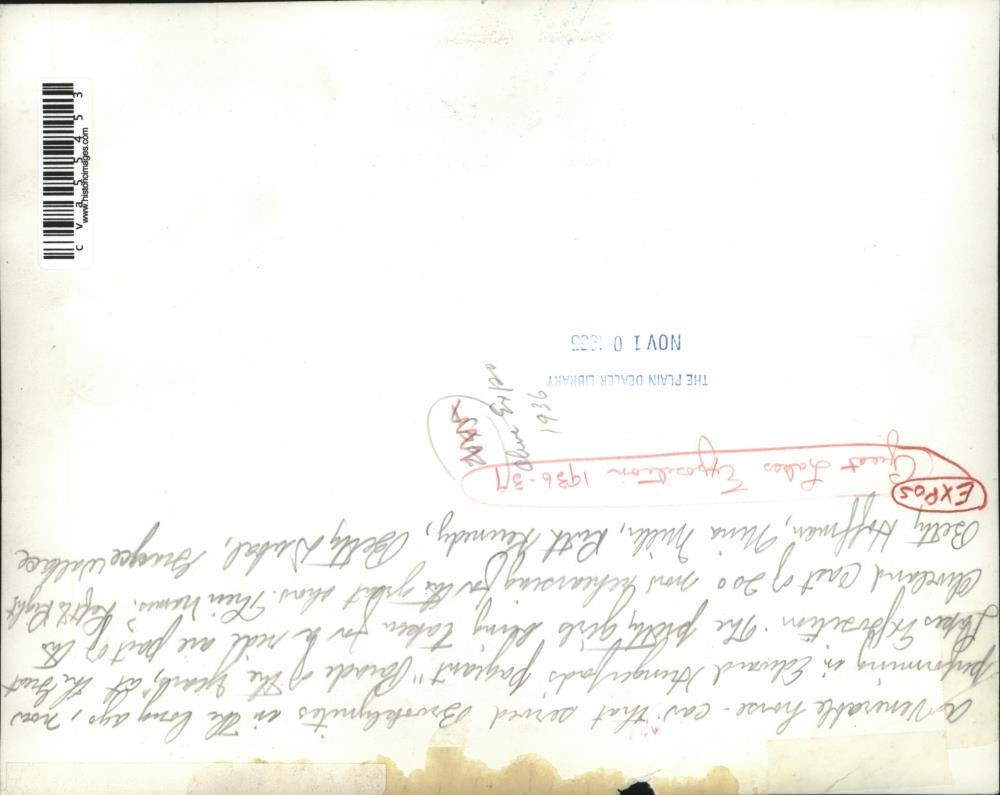 A venerable horse-car that served Brooklynites in the long ago, now
performing in Edward Hungerford's pageant "Parade of the Years" at the Great
Lakes Exposition. The pretty girls being taken for a ride are part of the
Cleveland cast of 200 now rehearsing for the great show. Their names, left to right
Betty Hoffman, Nina Mile, Ruth Kennedy, Betty Deibel, Grayce Wallace
EXPOS
Great Lakes Exposition 1936-37
Expo
1936
THE PLAIN DEALER LIBRARY
NOV 10
cva55453
www.historicimages.com